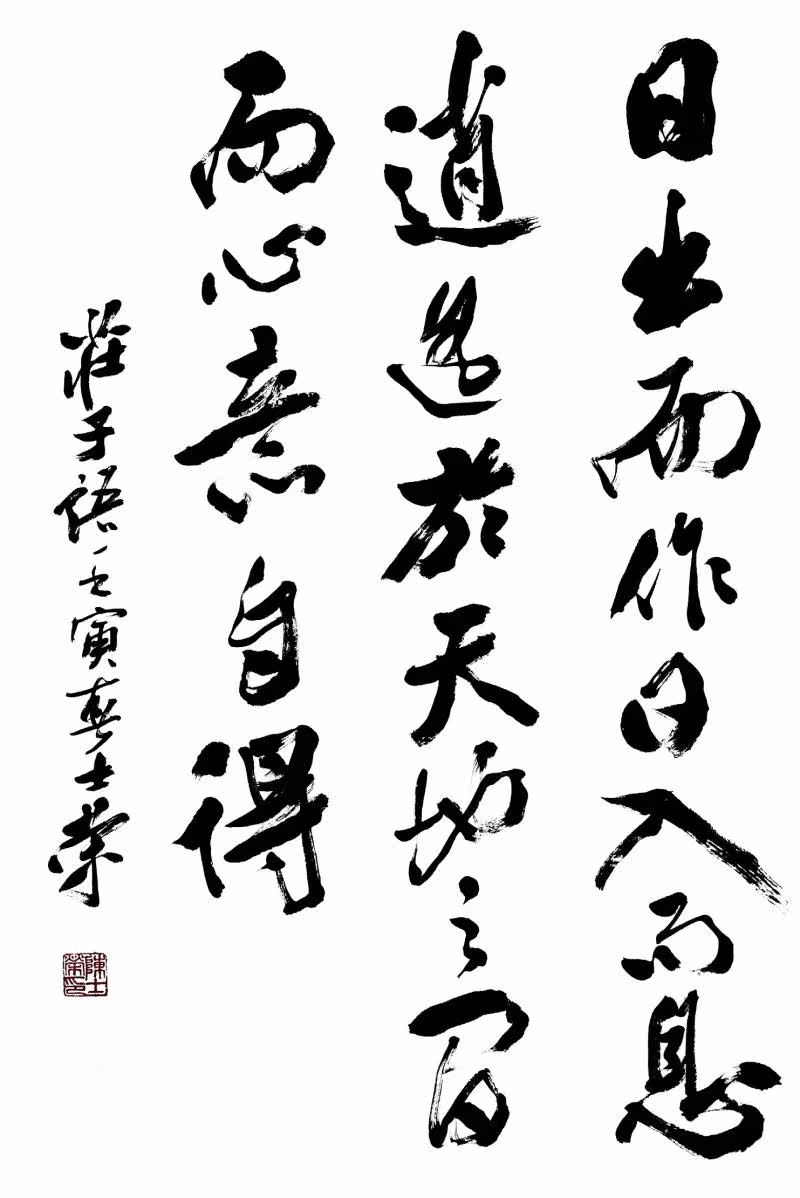 日出而作日入而息
逍遥於天地之间
而心意自得
莊子語壬寅春士榮
陳士榮印